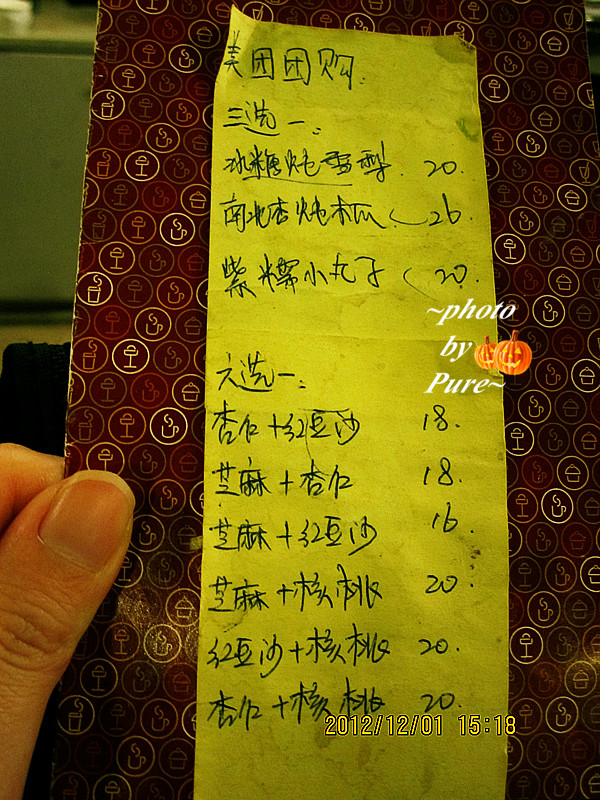 美团团购.
三选一:
冰糖炖雪梨. 20.
南北杏炖木瓜. 26.
紫糯小丸子 20.
~photo
by
Pure~
六选一:
杏仁+红豆沙 18.
芝麻+杏仁 18.
芝麻+红豆沙 16.
芝麻+核桃 20.
红豆沙+核桃 20.
杏仁+核桃 20.
2012/12/01 15:18